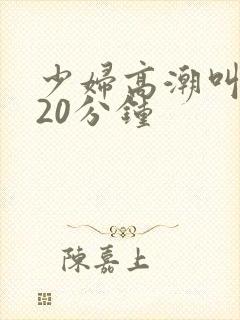 少婦高潮叫
20分鐘
陳嘉上